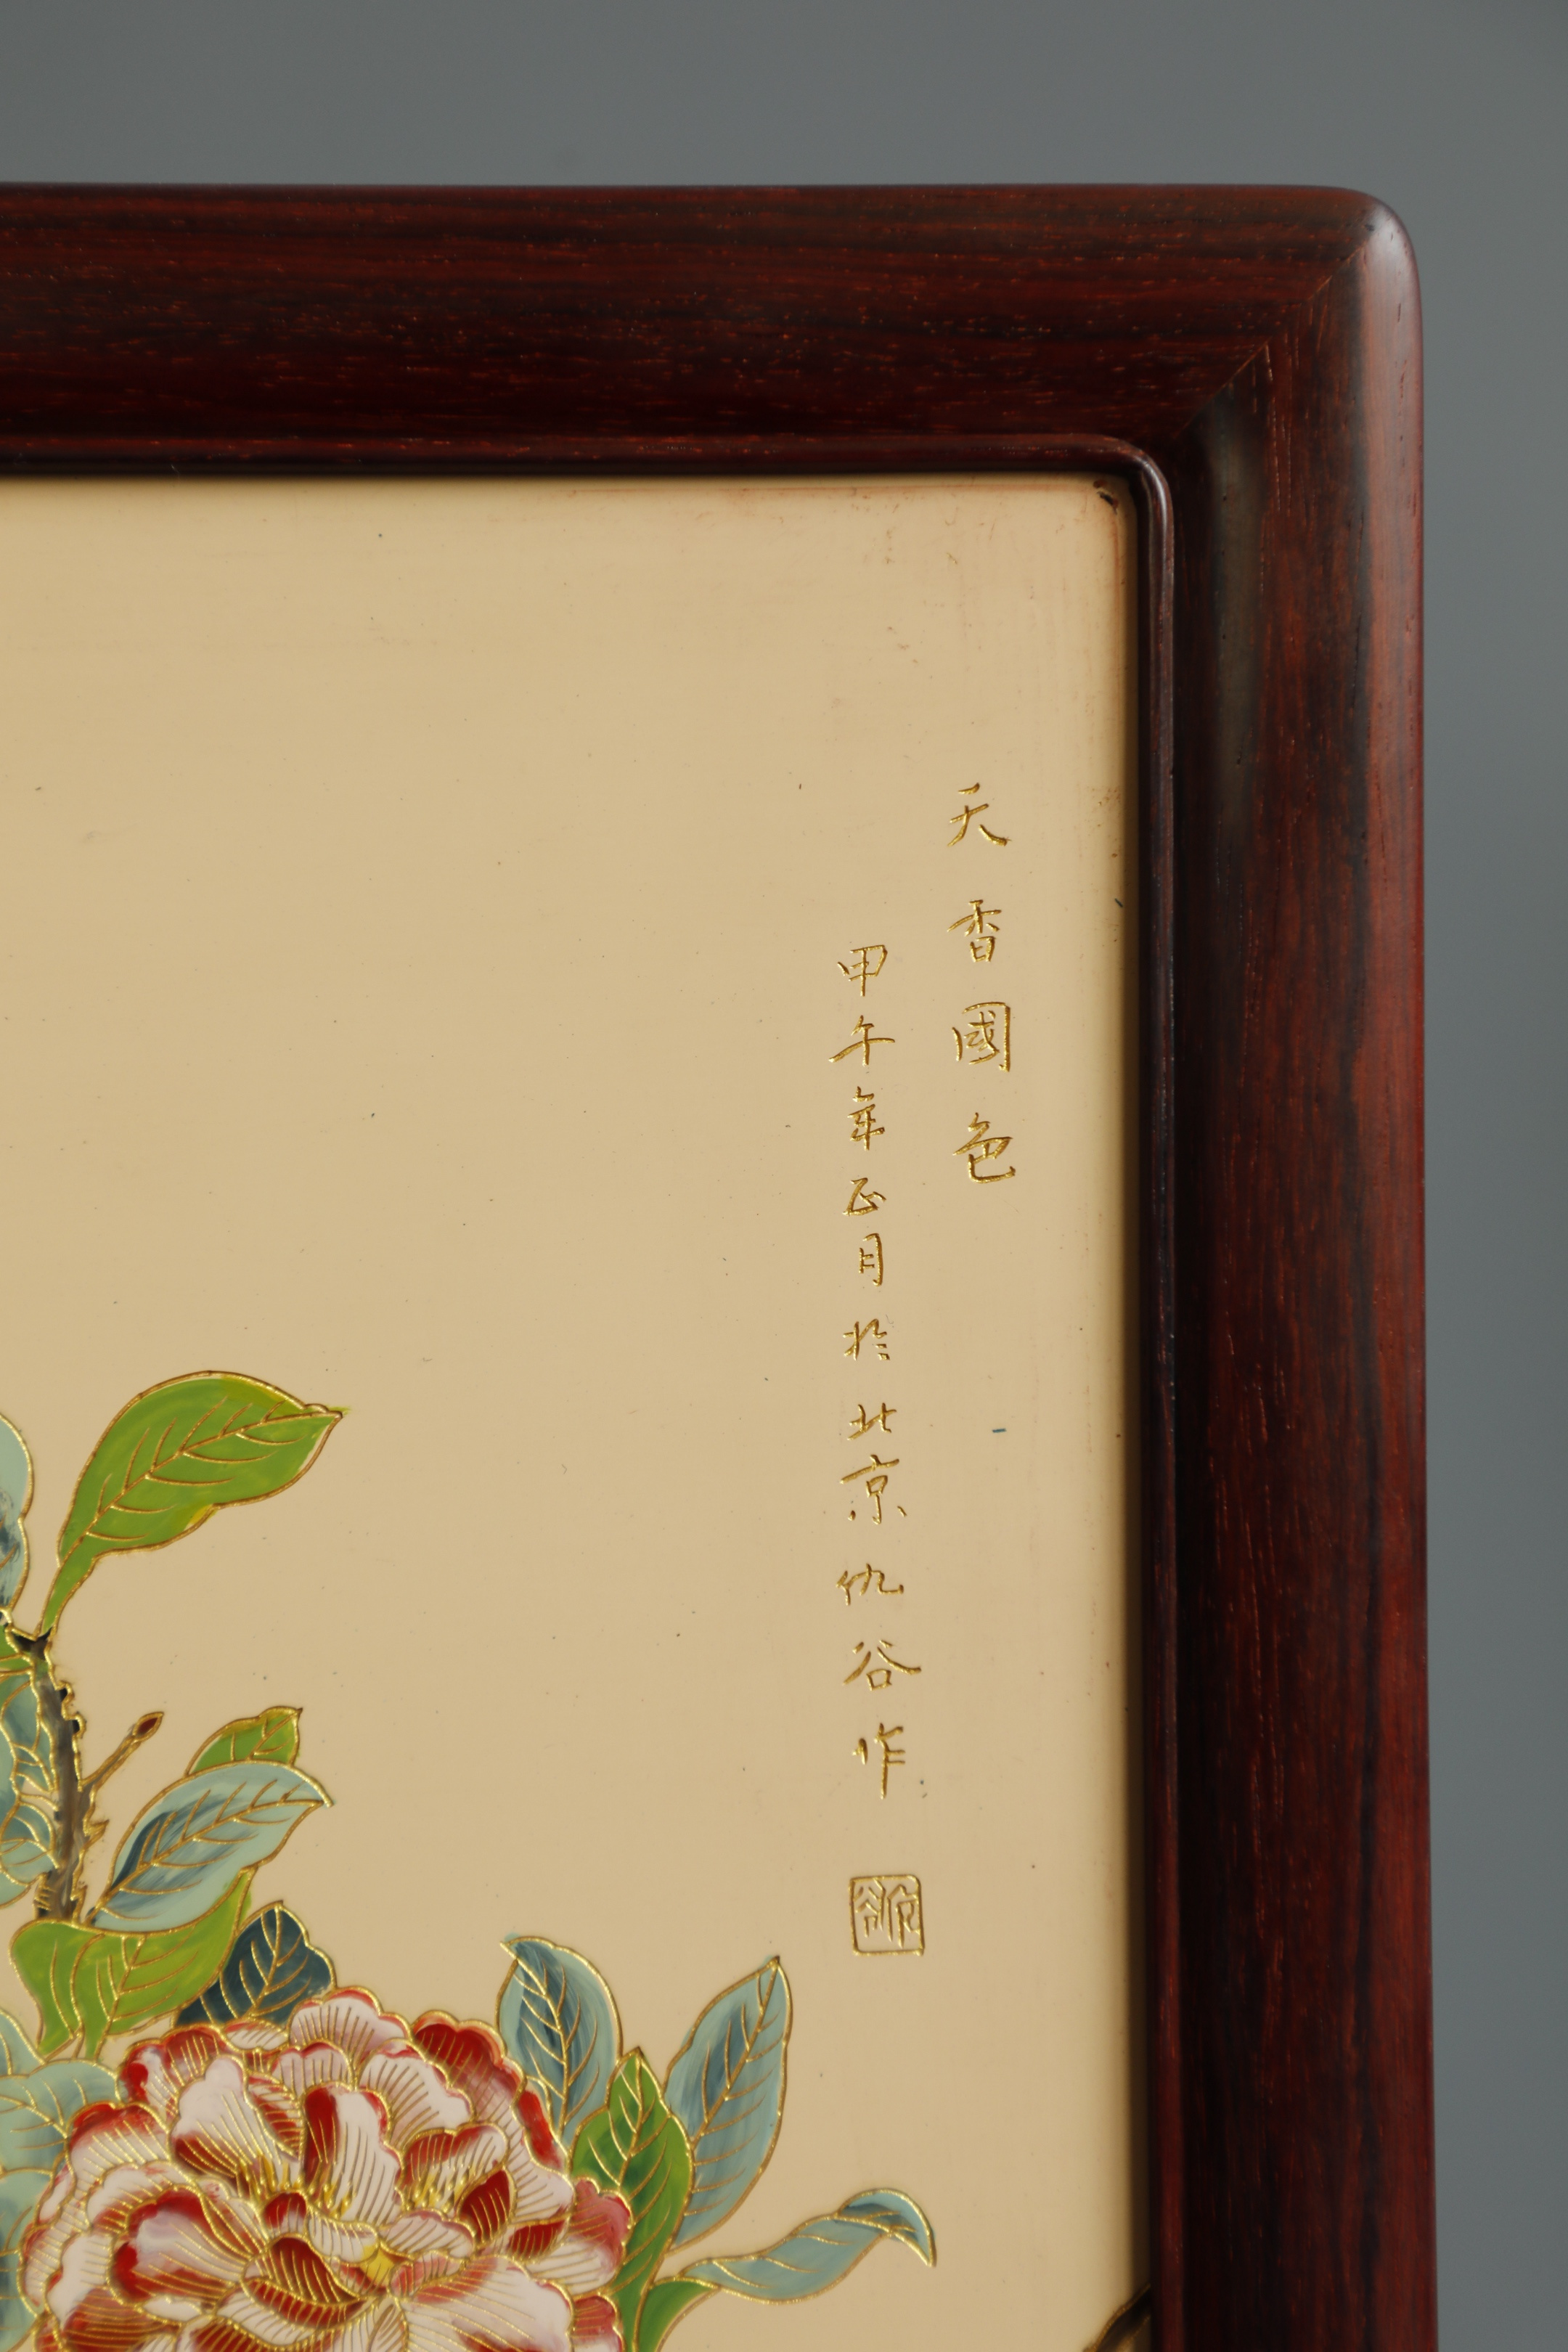 天香國色
甲午年正月於北京仇谷作